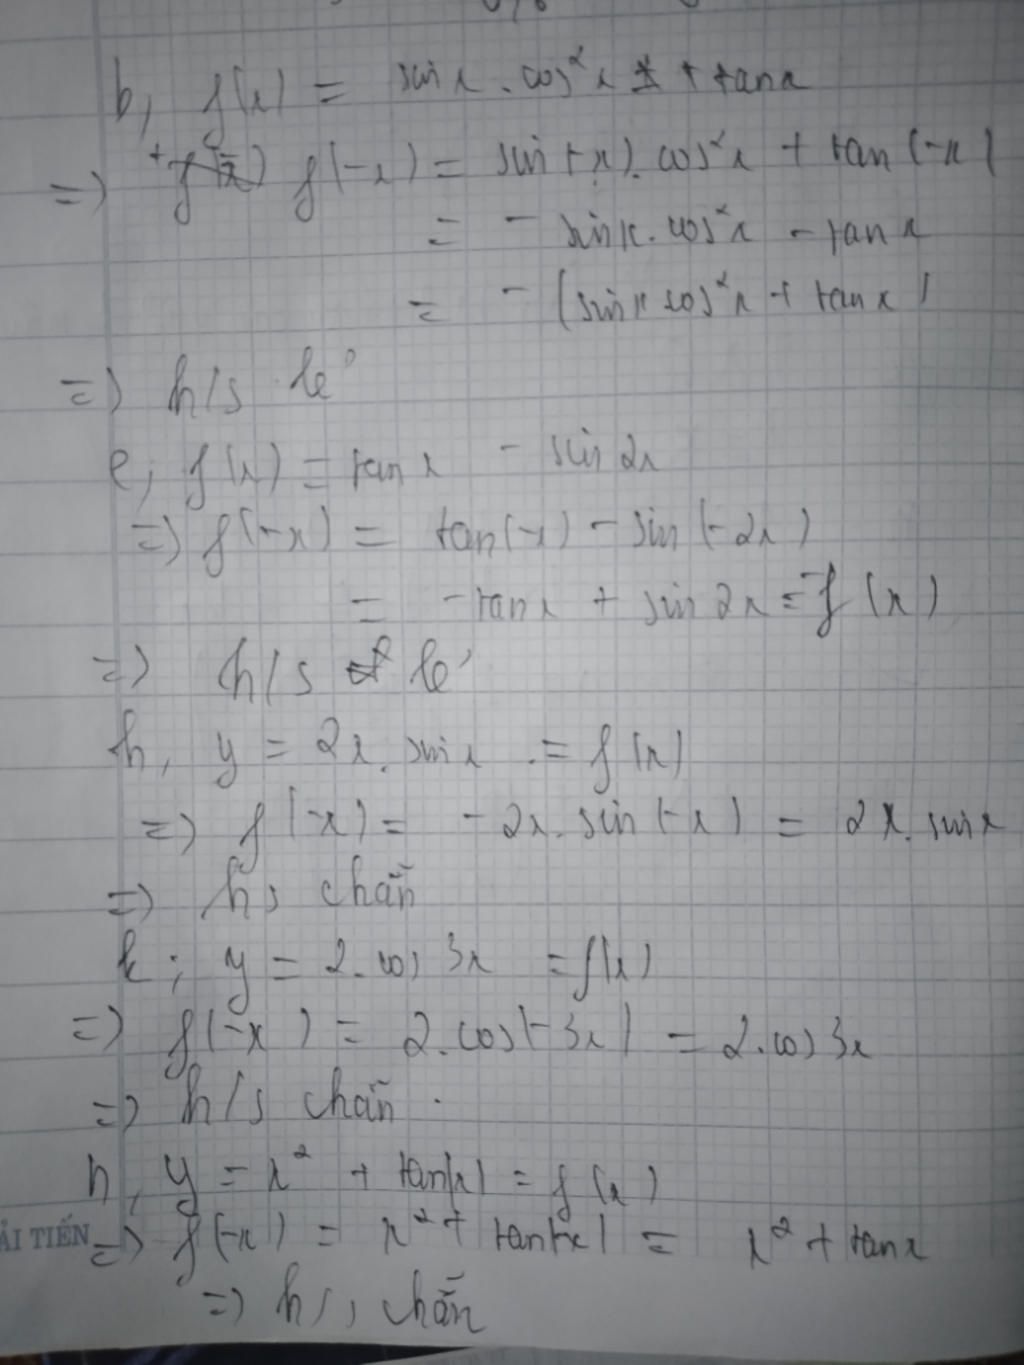 b, f(x) = sin x . cos²x + tan x
=) f(-x) = sin(-x). cos²x + tan(-x)
= - sin x. cos²x - tan x
= - (sin x cos²x + tan x)
=) h/s lẻ
e, f(x) = tan x - sin 2x
=) f(-x) = tan(-x) - sin(-2x)
= -tan x + sin 2x = -f(x)
=) h/s lẻ
h, y = 2x. sin x = f(x)
=) f(-x) = -2x. sin(-x) = 2x. sin x
=) hs chẵn
k, y = 2.cos 3x = f(x)
=) f(-x) = 2.cos(-3x) = 2.cos 3x
=) h/s chẵn.
n, y = x² + tan|x| = f(x)
ẢI TIẾN
=) f(-x) = x² + tan|-x| = x² + tan x
=) h/s chẵn